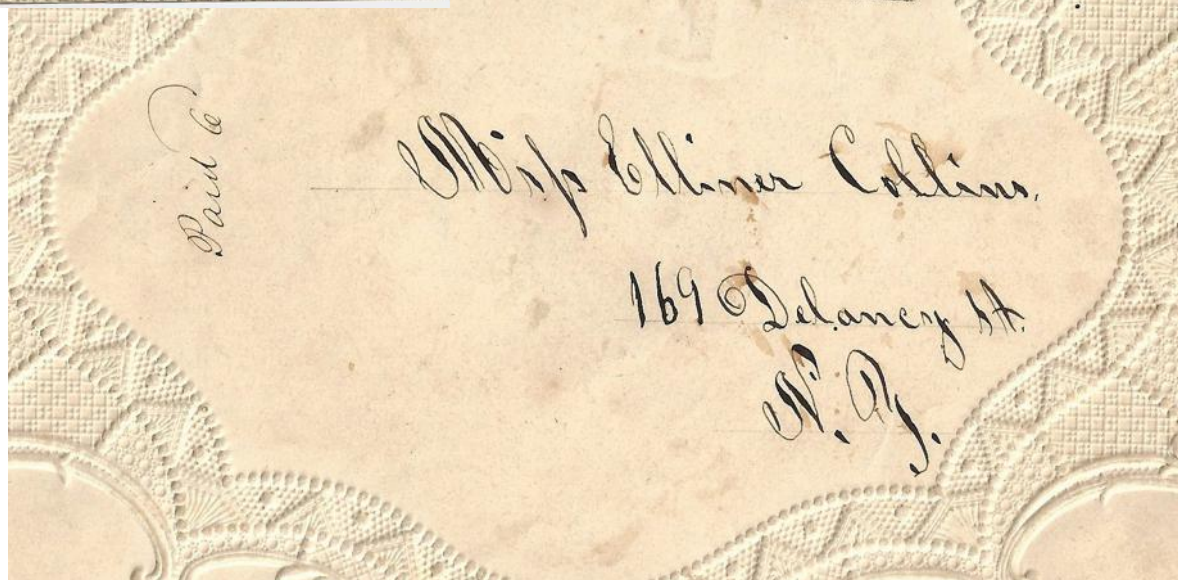 Paid 6
Miss Elliner Collins.
169 Delancy St.
N. Y.